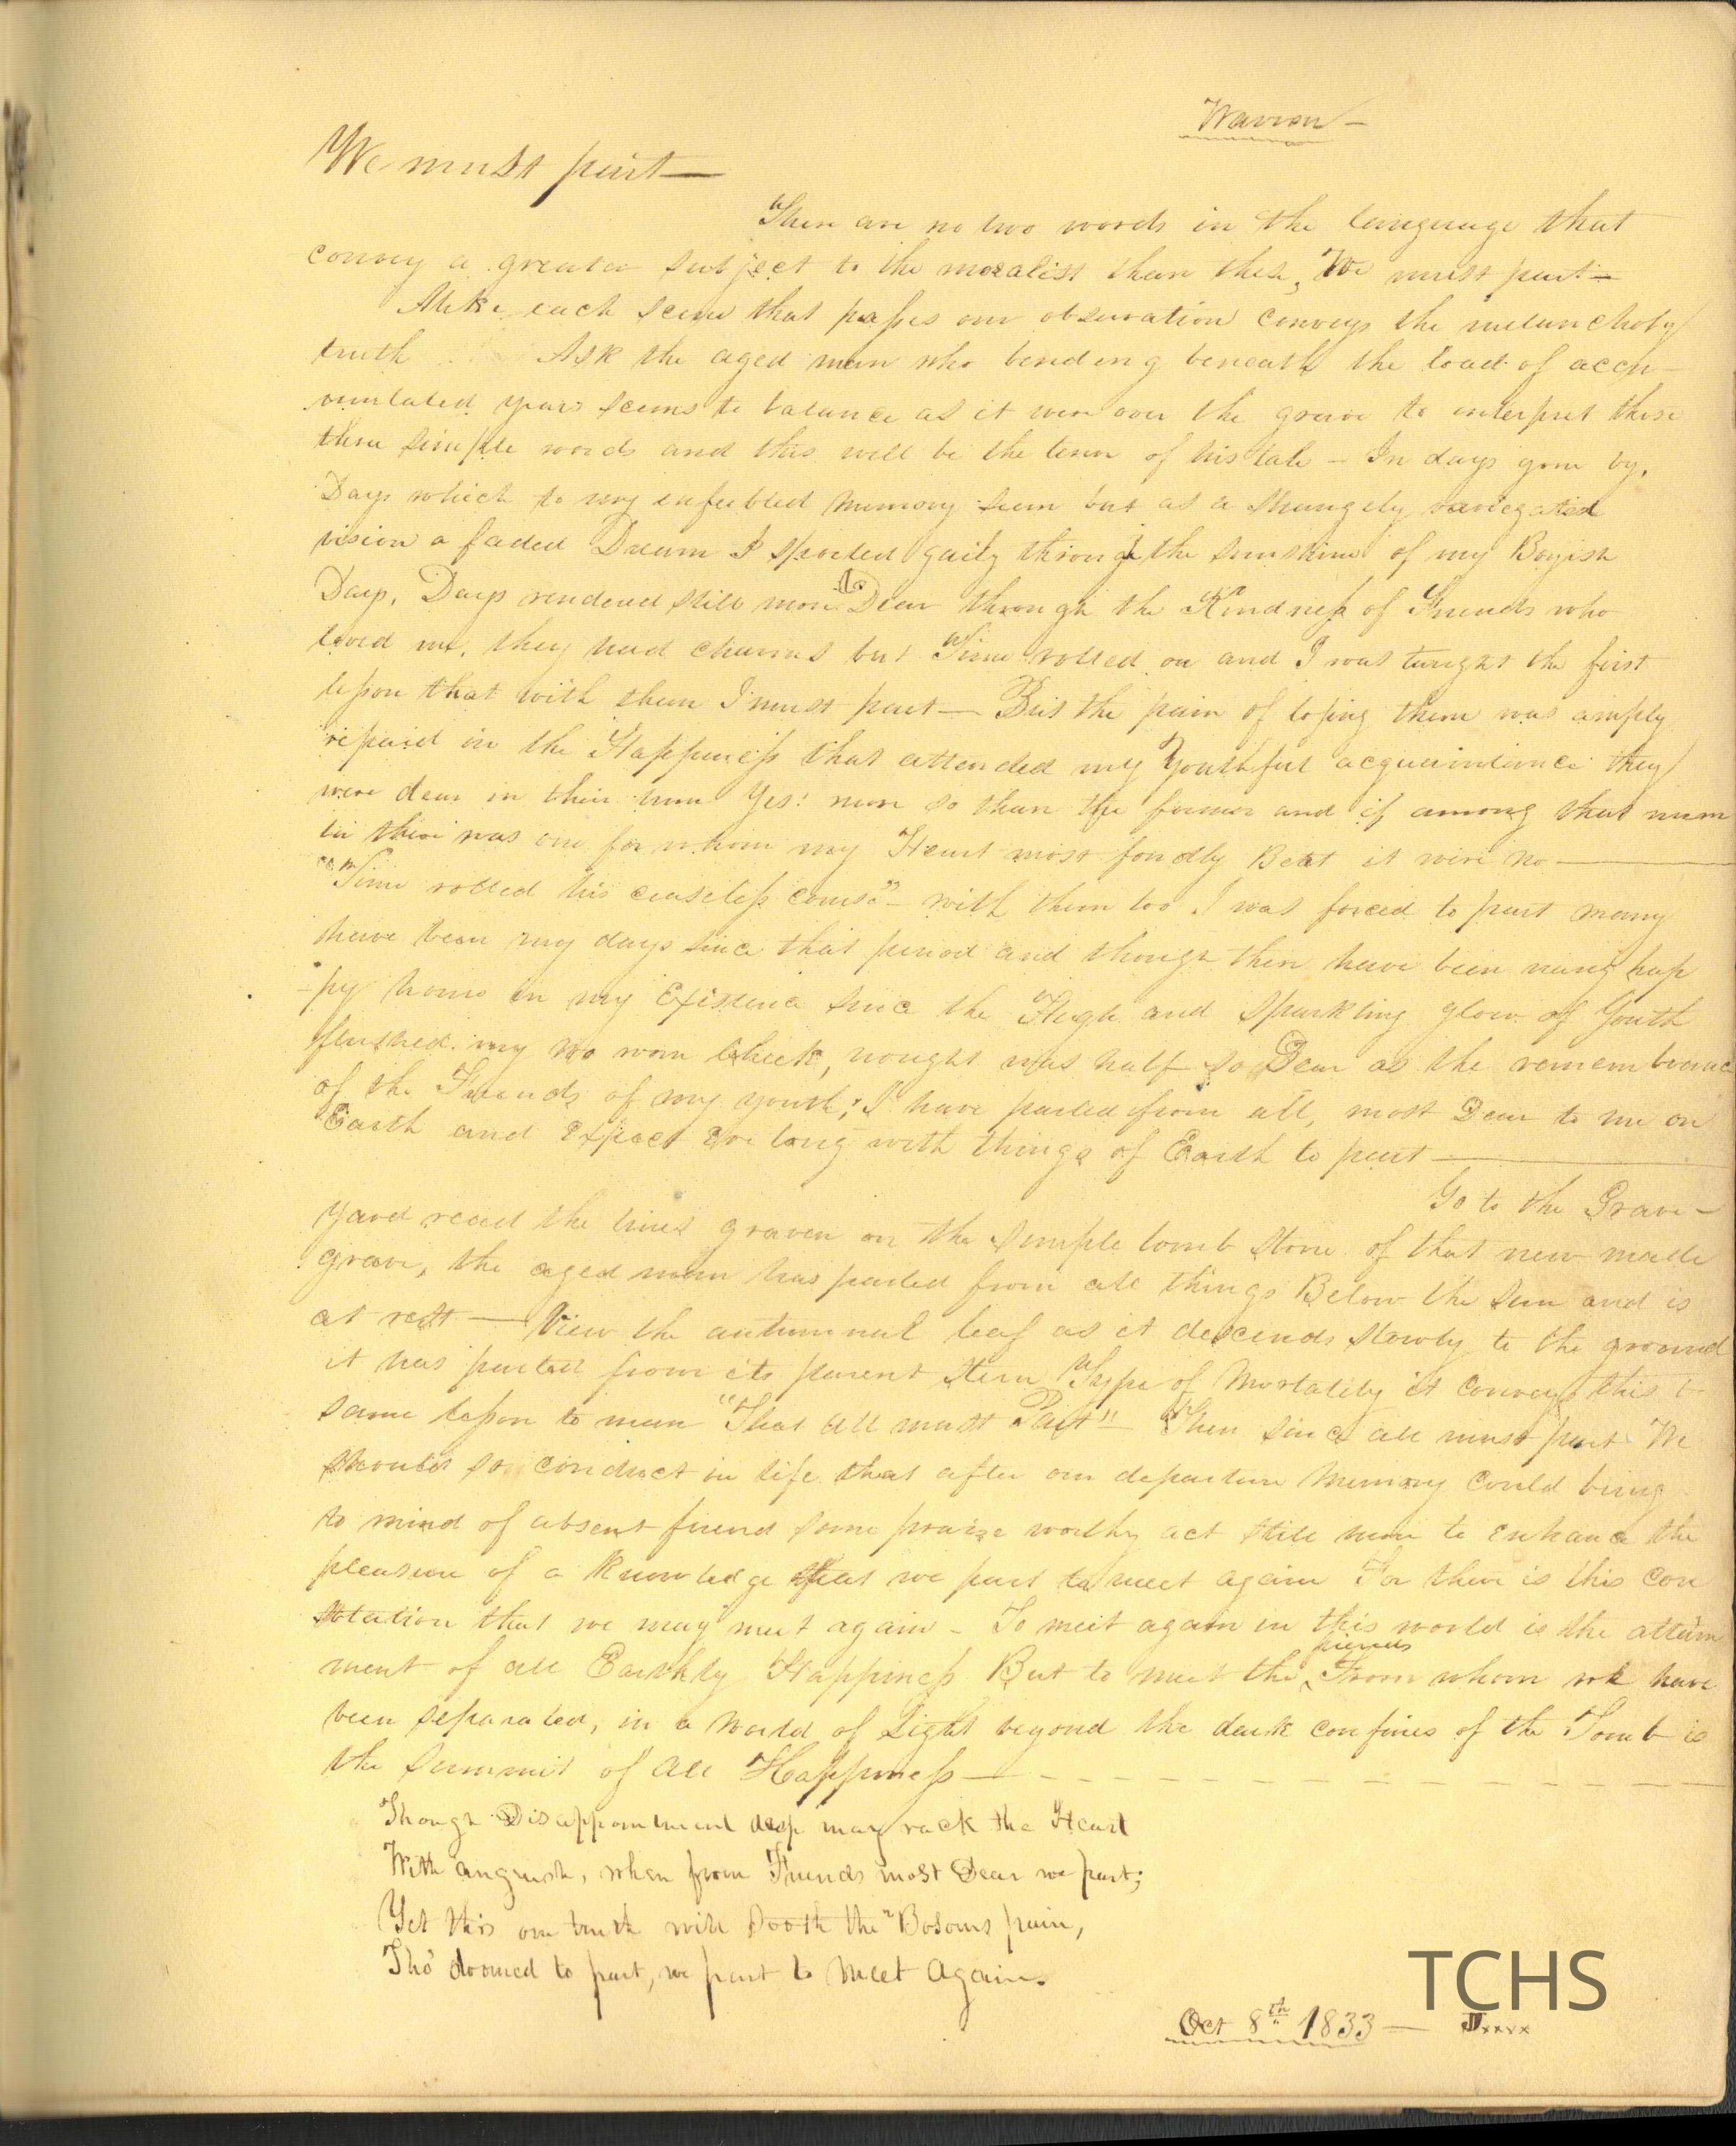 Warren —
We must part —
There are no two words in the language that
convey a greater subject to the moralist than these, We must part —
Alike each scene that passes our observation conveys the melancholy
truth Ask the aged man who bending beneath the load of accu-
mulated years seems to balance as it were over the grave to interpret these
three simple words and this will be the tenor of his tale — In days gone by,
Days which to my enfeebled memory seem but as a strangely variegated
vision a faded Dream I sported gaily through the sunshine of my Boyish
Days, Days rendered still more Dear through the Kindness of Friends who
loved me, they had charms but Time rolled on and I was taught the first
lesson that with them I must part — But the pain of losing them was amply
repaid in the Happiness that attended my Youthful acquaintance they
were dear in their turn Yes! more so than the former and if among that num
ber there was one for whom my Heart most fondly Beat it were no —
"Time rolled his ceaseless course" — with them too I was forced to part many
have been my days since that period and though there have been many hap
-py hours in my Existence since the High and Sparkling glow of Youth
flushed my wo worn cheek, nought was half so Dear as the remembrance
of the Friends of my youth; I have parted from all, most Dear to me on
Earth and Expect ere long with things of Earth to part —
Go to the Grave —
yard read the lines graven on the simple tomb stone of that new made
grave, the aged man has parted from all things Below the Sun and is
at rest — View the autumnal leaf as it descends slowly to the ground
it has parted from its parent Stem Type of Mortality it conveys this
same lesson to man "That all must Part" — Then since all must part We
should so conduct in life that after our departure Memory could bring
to mind of absent friend some praise worthy act still more to enhance the
pleasure of a knowledge that we part to meet again For there is this con
solation that we may meet again — To meet again in this world is the attain
ment of all Earthly Happiness But to meet the friends From whom we have
been separated, in a World of Light beyond the dark confines of the Tomb is
the Summit of all Happiness —
Though Disappointment deep may rack the Heart
With anguish, when from Friends most Dear we part;
Yet this one truth will sooth the Bosoms pain,
Tho' doomed to part, we part to Meet Again.
Oct 8th 1833 —
TCHS